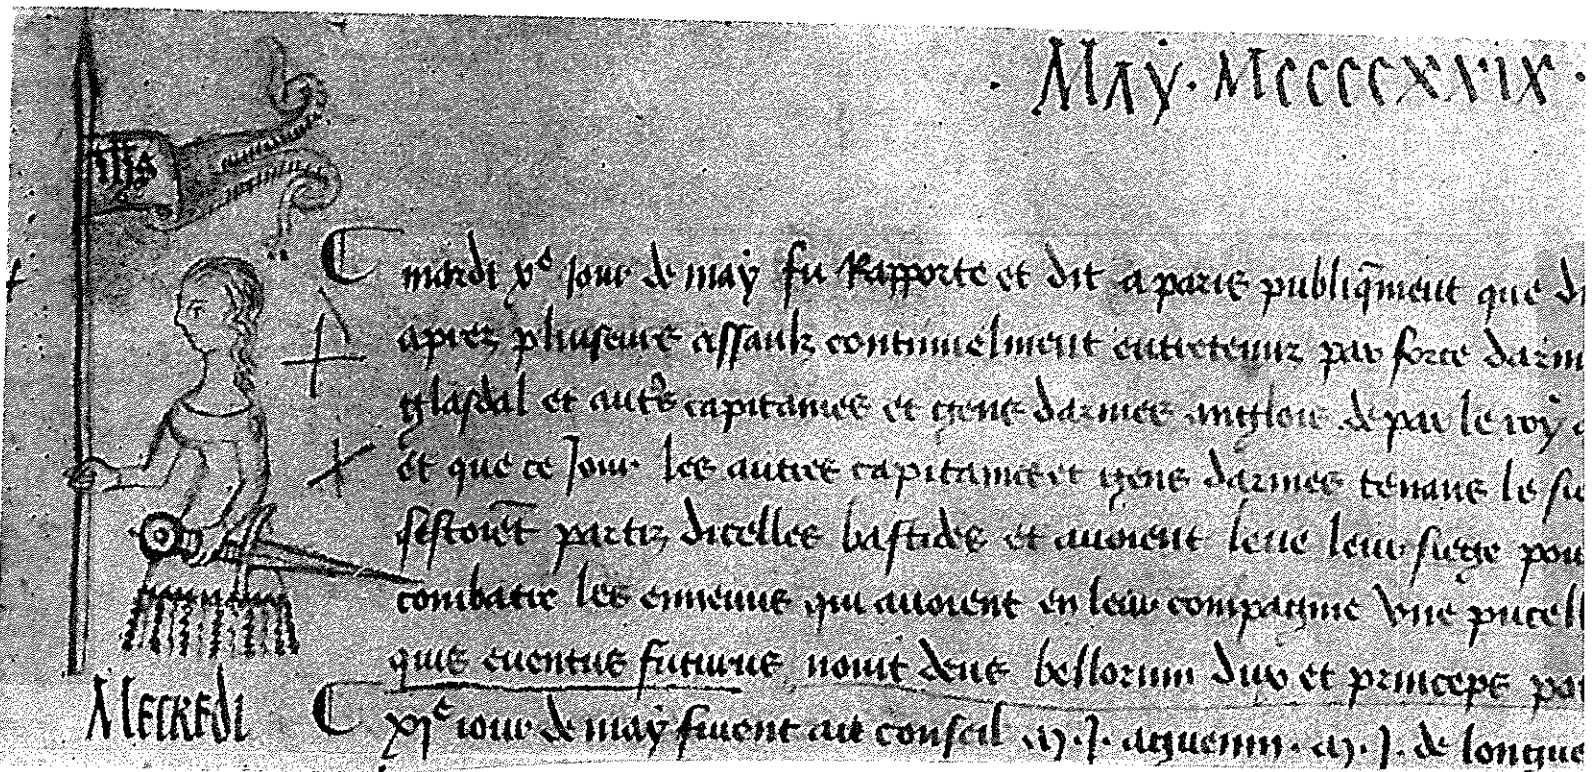 · MAY · MCCCCXXIX ·
IHS
mardi xe jour de may fu Rapporte et dit a paris publiqment que di
aprez pluseurs assaulz continuelment entretenuz par force darm
glasdal et autrs capitaines et gens darmes anglois de par le roy
et que ce jour les autres capitaines et gens darmes tenans le sie
sestoiet partiz dicelles bastides et avoient leve leur siege pou
combatre les ennemis qui avoient en leur compagnie une pucell
quis eventus futurus novit deus bellorum dux et princeps po
MECREDI
XIe jour de may furent au conseil m. J. aguenin. m. J. de longue